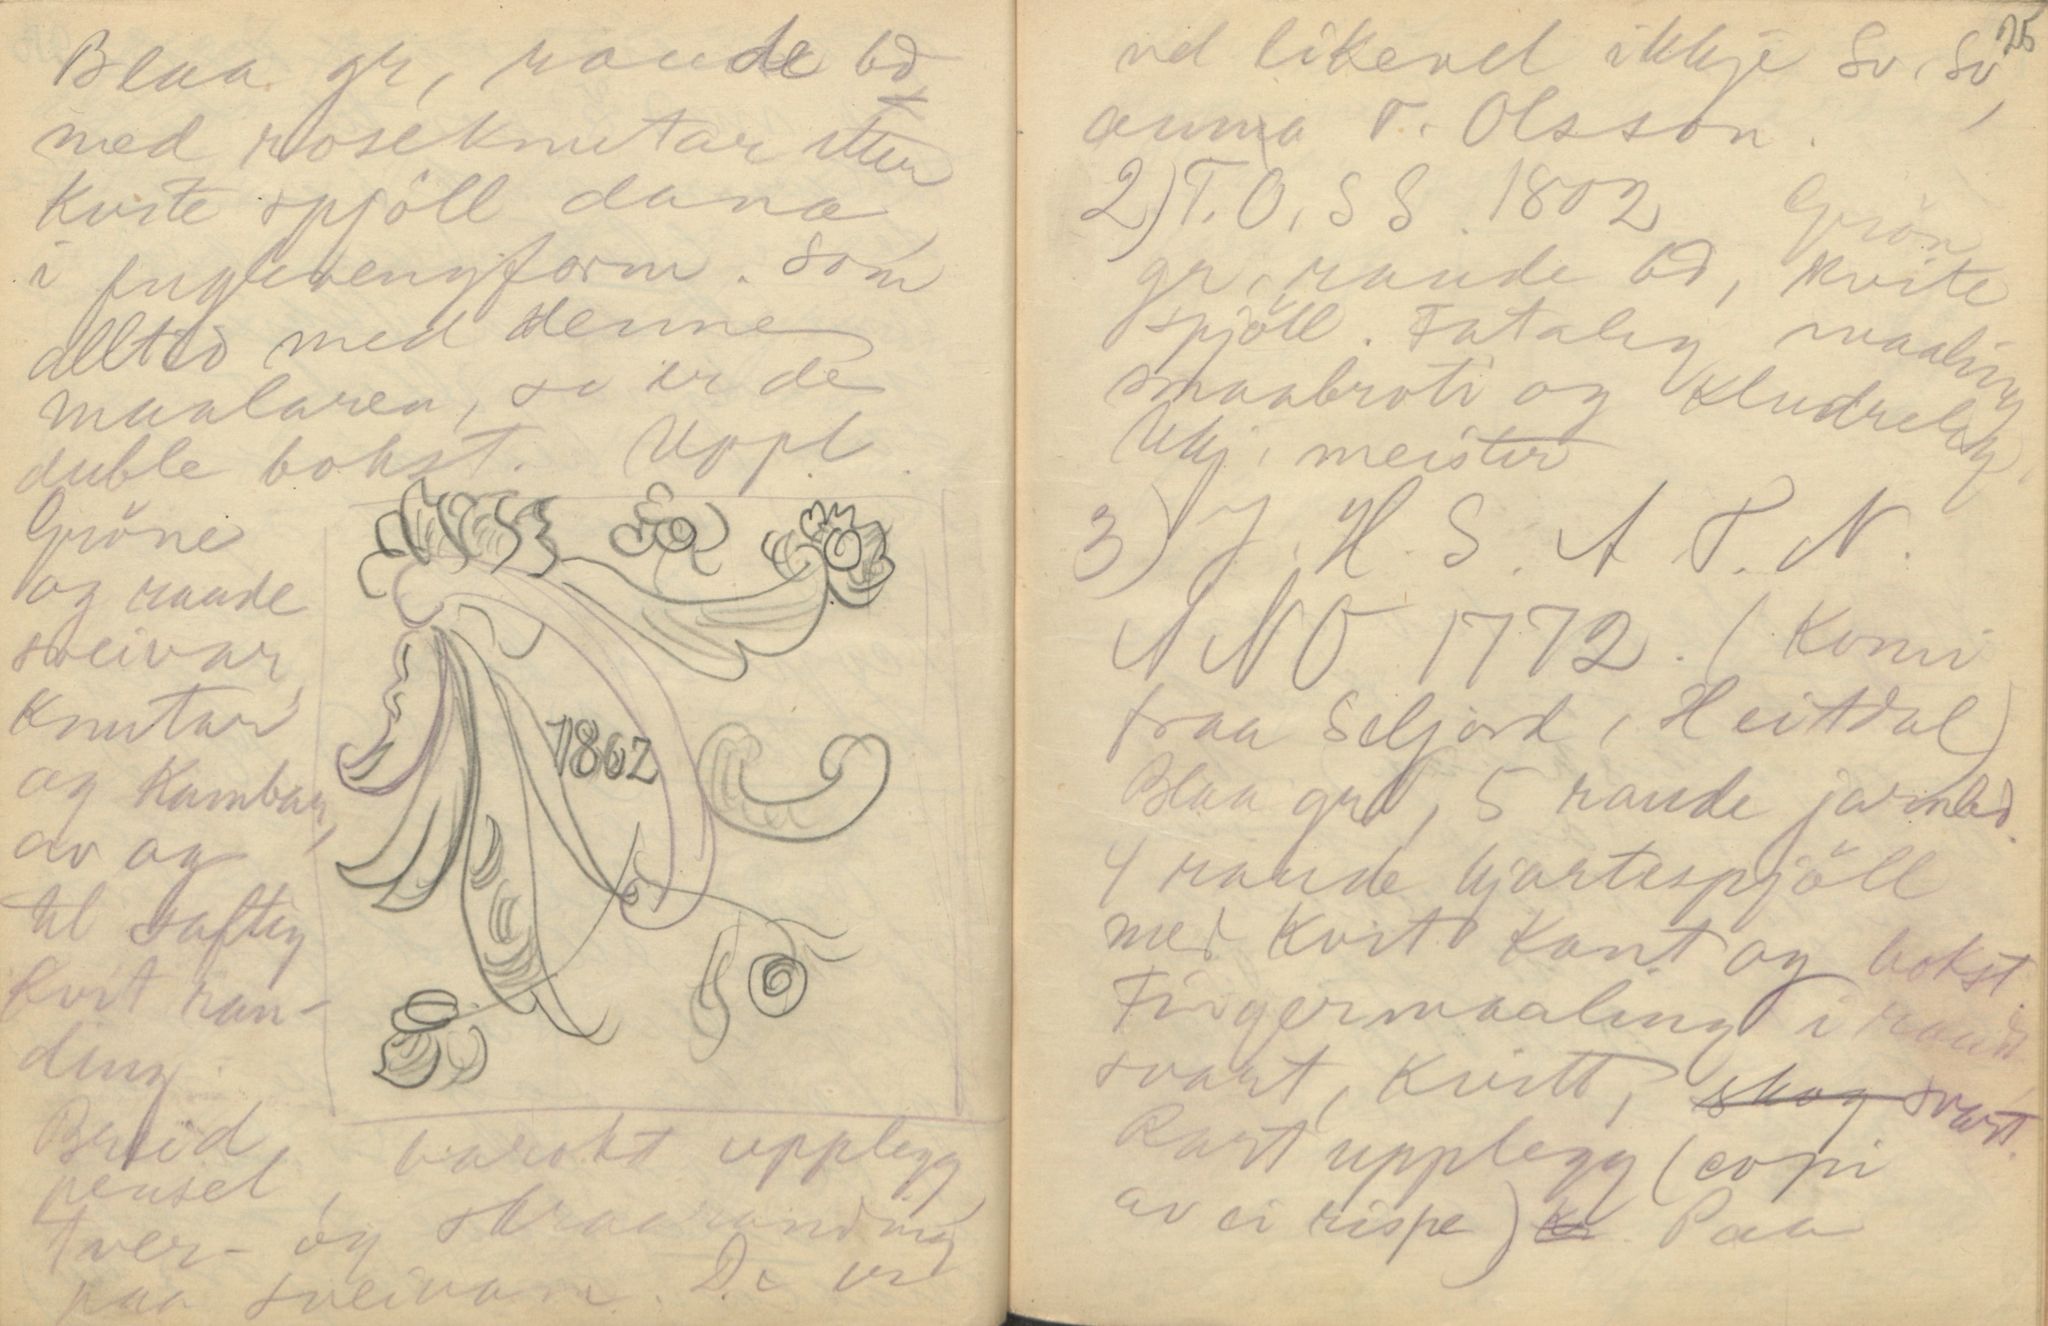 Blaa gr, raude bd
med roseknutar etter
Kvite spjöll dana
i fuglevengform. Som
alltid med denne
maalaren, so er de
duble bokst. Uppl.
Gröne
og raude
sveivar,
Knutar
og Kambar,
av og
til saftig
Kvit ran-
ding.
1862
Breid
pensel, barokt upplegg
tver- og skraaranding
paa sveivan. De er
25
vel likevel ikkje So, So,
anna T. Olsson.
2) T. O. S S. 1802 Grön
gr, raude bd, Kvite
spjöll. Fataleg maaling
smaabroti og Kludreleg,
Ukj. meister
3) J. H. S. A T. N.
ANO 1772. (Komi
fraa Seljord, Heitdal)
Blaa gr, 5 raude jarnbd.
4 raude hjartespjöll
med Kvit Kant og bokst.
Fingermaaling i raudt
svart, Kvitt, skog svart.
Rart upplegg (copi
av ei rispe) Paa